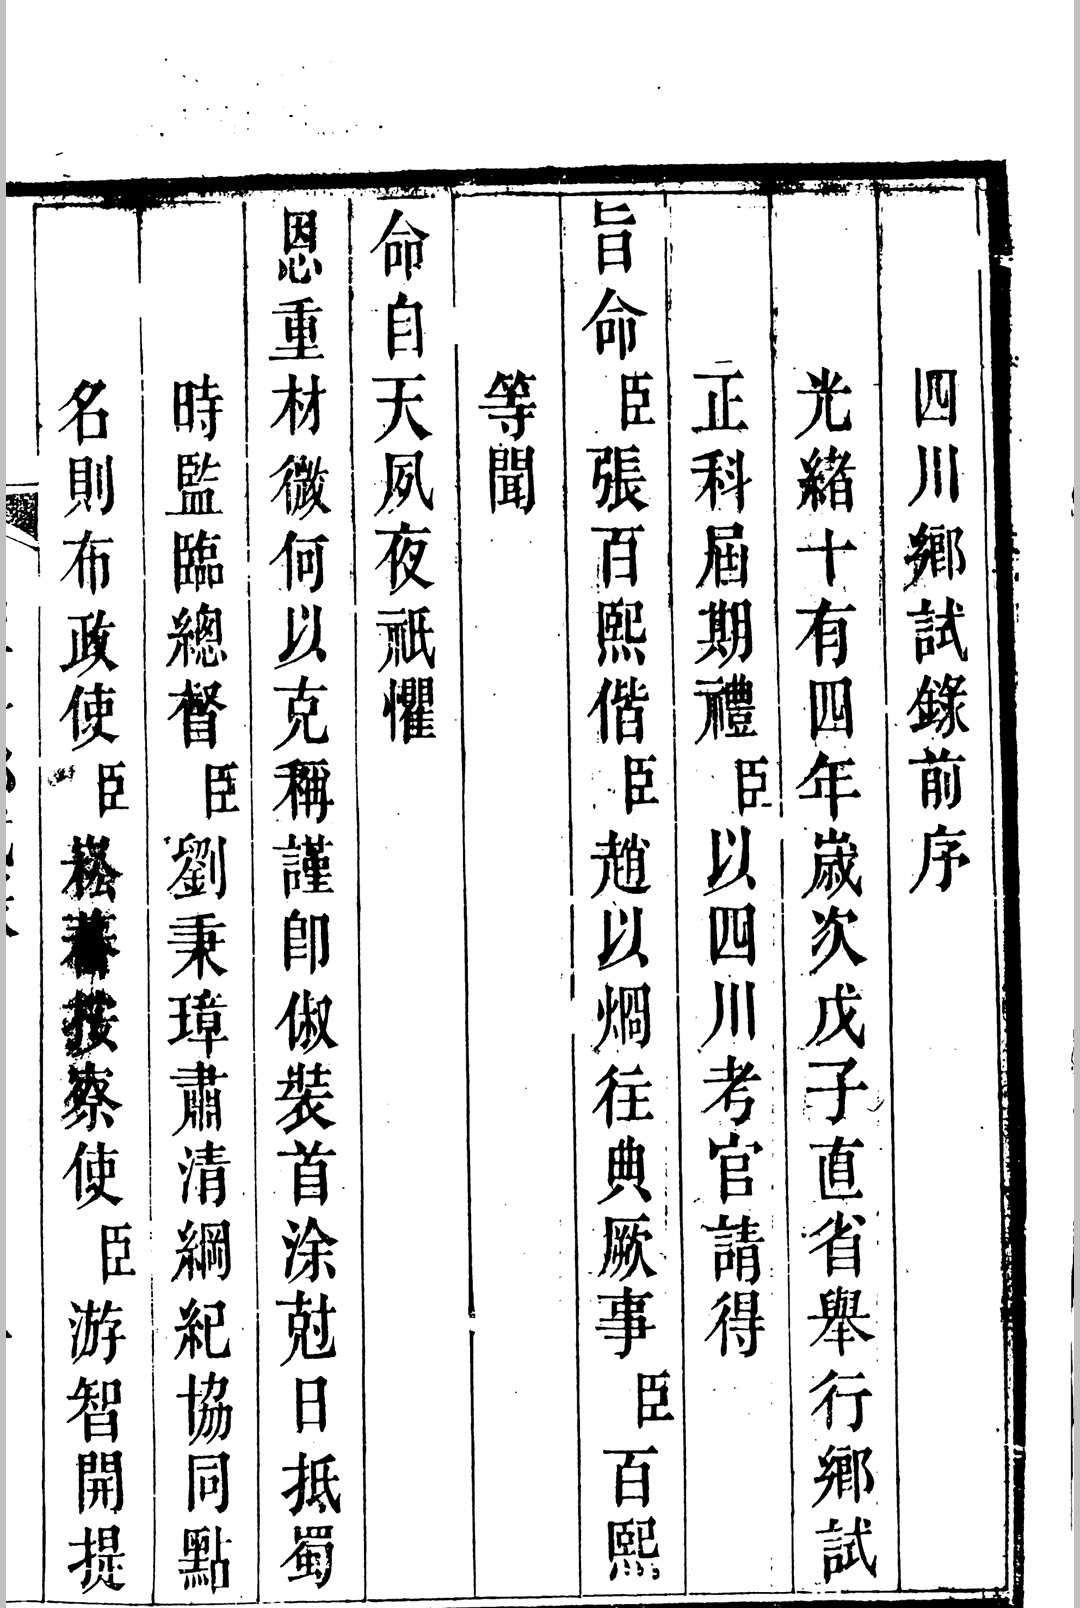 四川鄉試錄前序
光緒十有四年歲次戊子直省舉行鄉試
正科屆期禮臣以四川考官請得
旨命臣張百熙偕臣趙以烱往典厥事臣百熙
等聞
命自天夙夜祇懼
恩重材微何以克稱謹卽俶裝首涂尅日抵蜀
時監臨總督臣劉秉璋肅清綱紀協同點
名則布政使臣崧蕃按察使臣游智開提